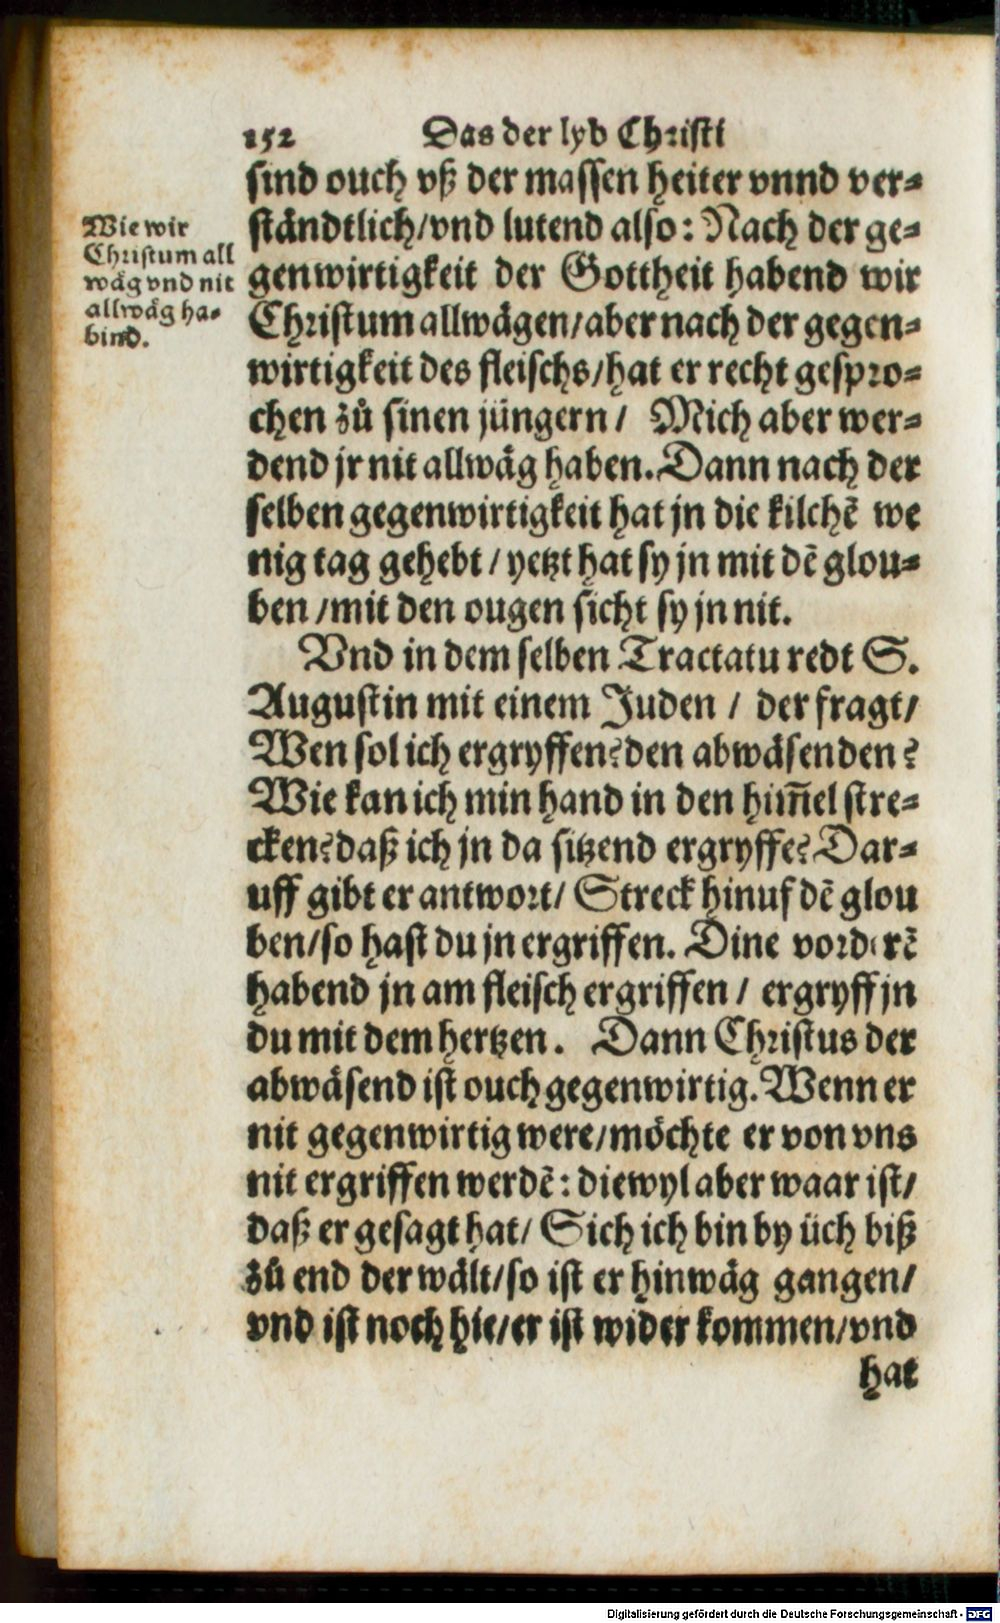 152 Das der lyb Christi
sind ouch vß der massen heiter vnnd ver⸗
ständtlich/vnd lutend also: Nach der ge⸗
genwirtigkeit der Gottheit habend wir
Christum allwägen/aber nach der gegen⸗
wirtigkeit des fleischs/hat er recht gespro⸗
chen zů sinen jüngern/ Mich aber wer⸗
dend jr nit allwäg haben. Dann nach der
selben gegenwirtigkeit hat jn die kilchẽ we
nig tag gehebt/yetzt hat sy jn mit dẽ glou⸗
ben/mit den ougen sicht sy jn nit.
Wie wir
Christum all
wäg vnd nit
allwäg ha⸗
bind.
Vnd in dem selben Tractatu redt S.
Augustin mit einem Juden / der fragt/
Wen sol ich ergryffen? den abwäsenden?
Wie kan ich min hand in den him̃el stre⸗
cken? daß ich jn da sitzend ergryffe? Dar⸗
uff gibt er antwort/ Streck hinuf dẽ glou
ben/so hast du jn ergriffen. Dine vorderẽ
habend jn am fleisch ergriffen/ ergryff jn
du mit dem hertzen. Dann Christus der
abwäsend ist ouch gegenwirtig. Wenn er
nit gegenwirtig were/möchte er von vns
nit ergriffen werdẽ: diewyl aber waar ist/
daß er gesagt hat/ Sich ich bin by üch biß
zů end der wält/so ist er hinwäg gangen/
vnd ist noch hie/er ist wider kommen/vnd
hat
Digitalisierung gefördert durch die Deutsche Forschungsgemeinschaft - DFG